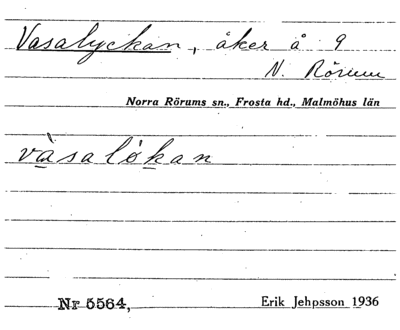 Vasalyckan, åker å 9
N. Rörum
Norra Rörums sn., Frosta hd., Malmöhus län
vàsalo̍kan
Nr 5564,
Erik Jehpsson 1936